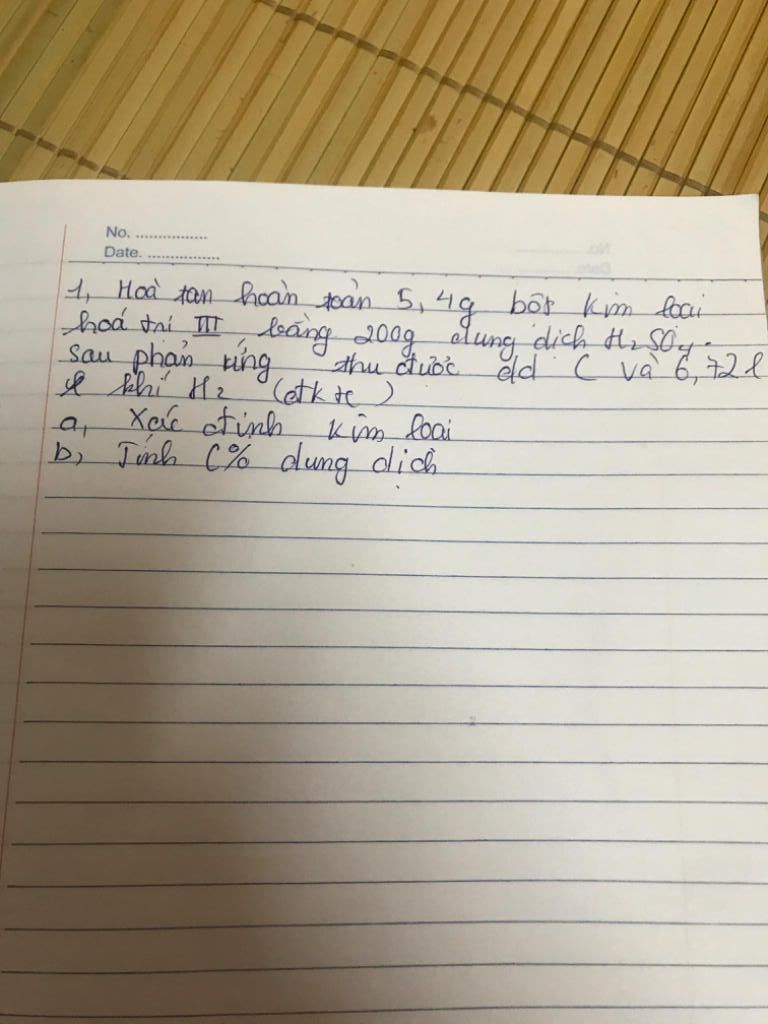 No. ................
Date. ................
1, Hoà tan hoàn toàn 5,4g bột kim loại
hoá trị III bằng 200g dung dịch H₂SO₄.
sau phản ứng thu được dd C và 6,72 l
khí H₂ (đktc)
a, Xác định kim loại
b, Tính C% dung dịch